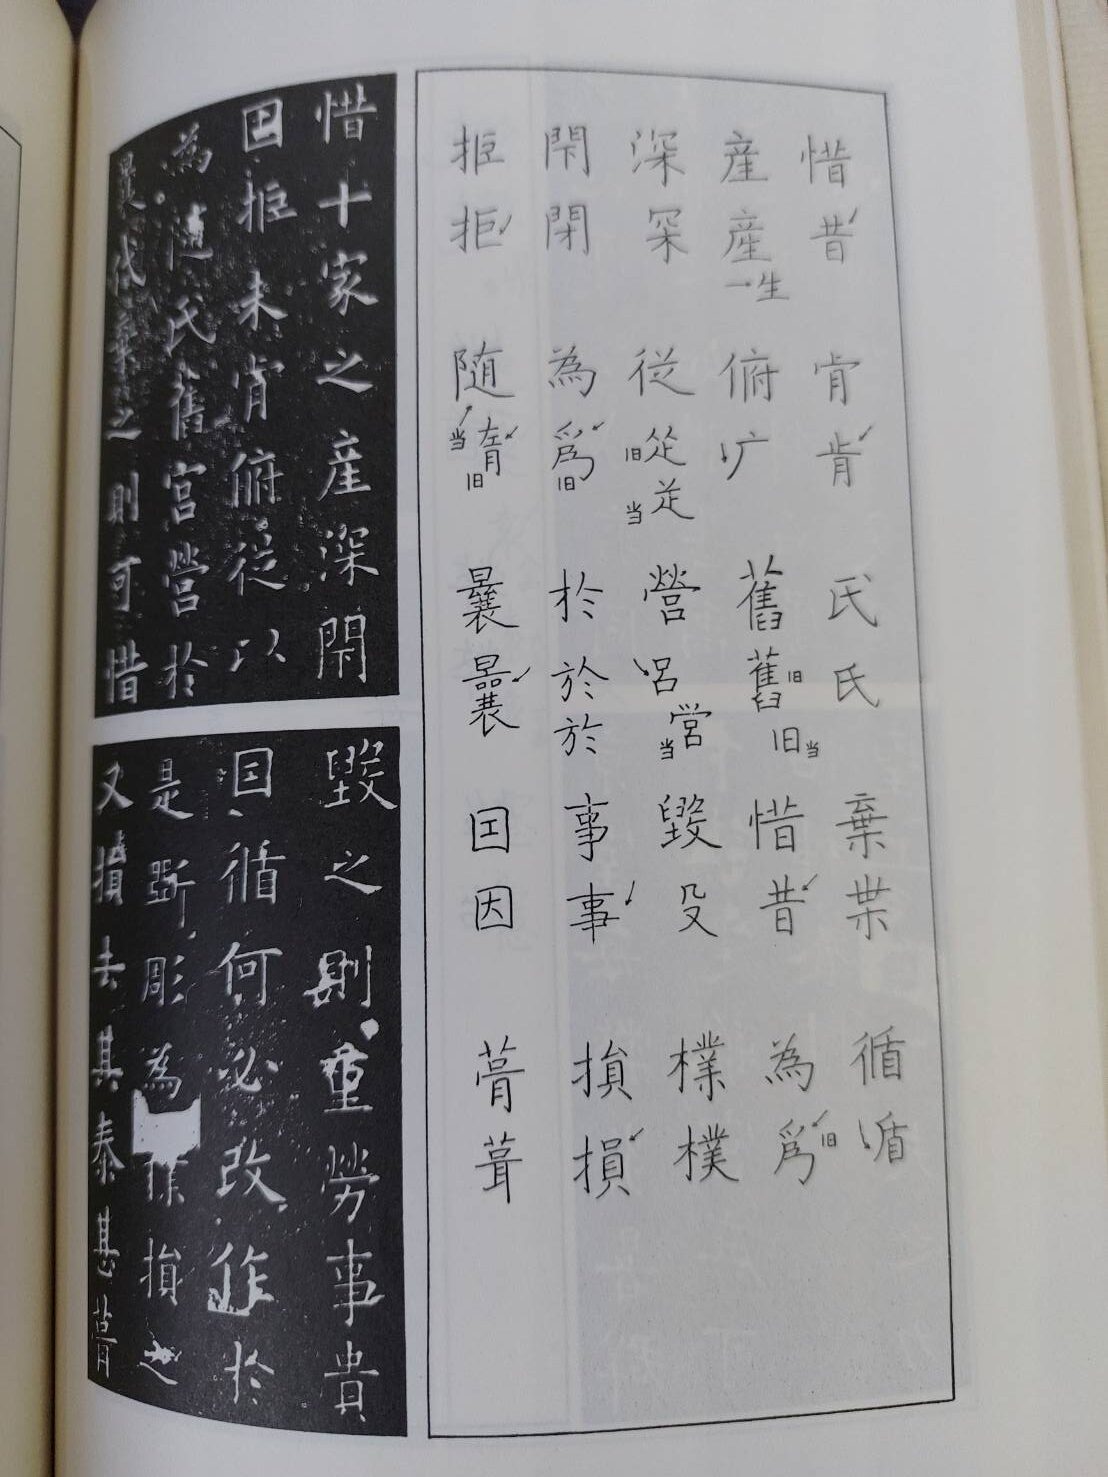 惜昔 肯肯 氏氏 棄枼 循盾
産産一生 俯广 舊舊旧旧当 惜昔 為爲旧
深罙 従旧当 營呂営当 毀殳 樸樸
閇閉 為爲旧 於於於 事事 損損
拒拒 随当旧 曩曩 囙因 葺葺
惜十家之産深閇
固拒未肯俯従以
為随氏舊宮營於
曩代棄之則可惜
毀之則重勞事貴
囙循何必改作於
是斲彫為樸損之
又損去其泰甚葺